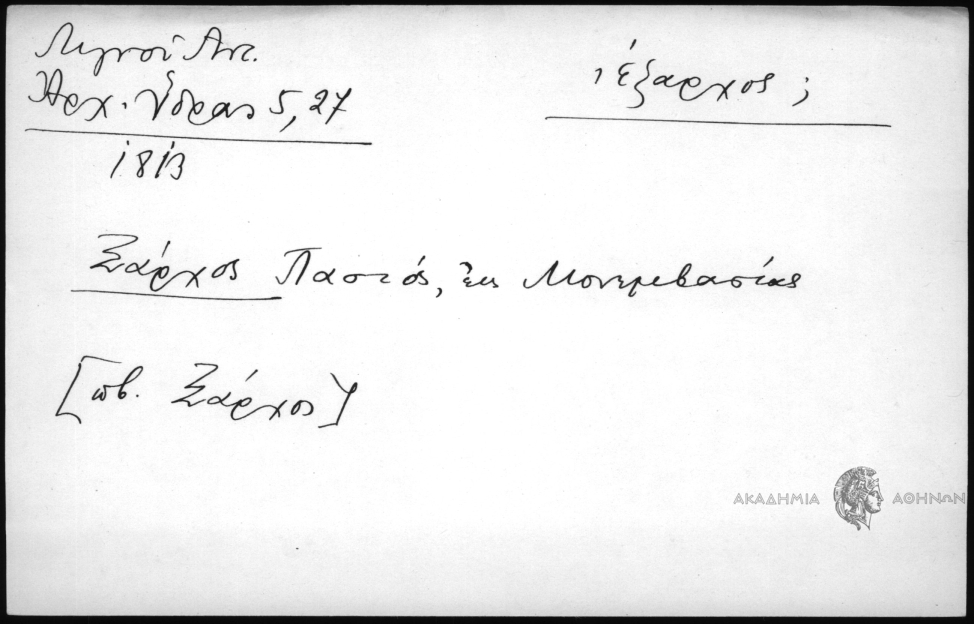 Λιγνοῦ Ἀντ.
Ἀρχ. Ὕδρας 5, 27
1813
ἔξαρχος ;
Ξάρχος Παστός, ἐκ Μονεμβασίας
[πβ. Ξάρχος]
ΑΚΑΔΗΜΙΑ ΑΘΗΝΩΝ